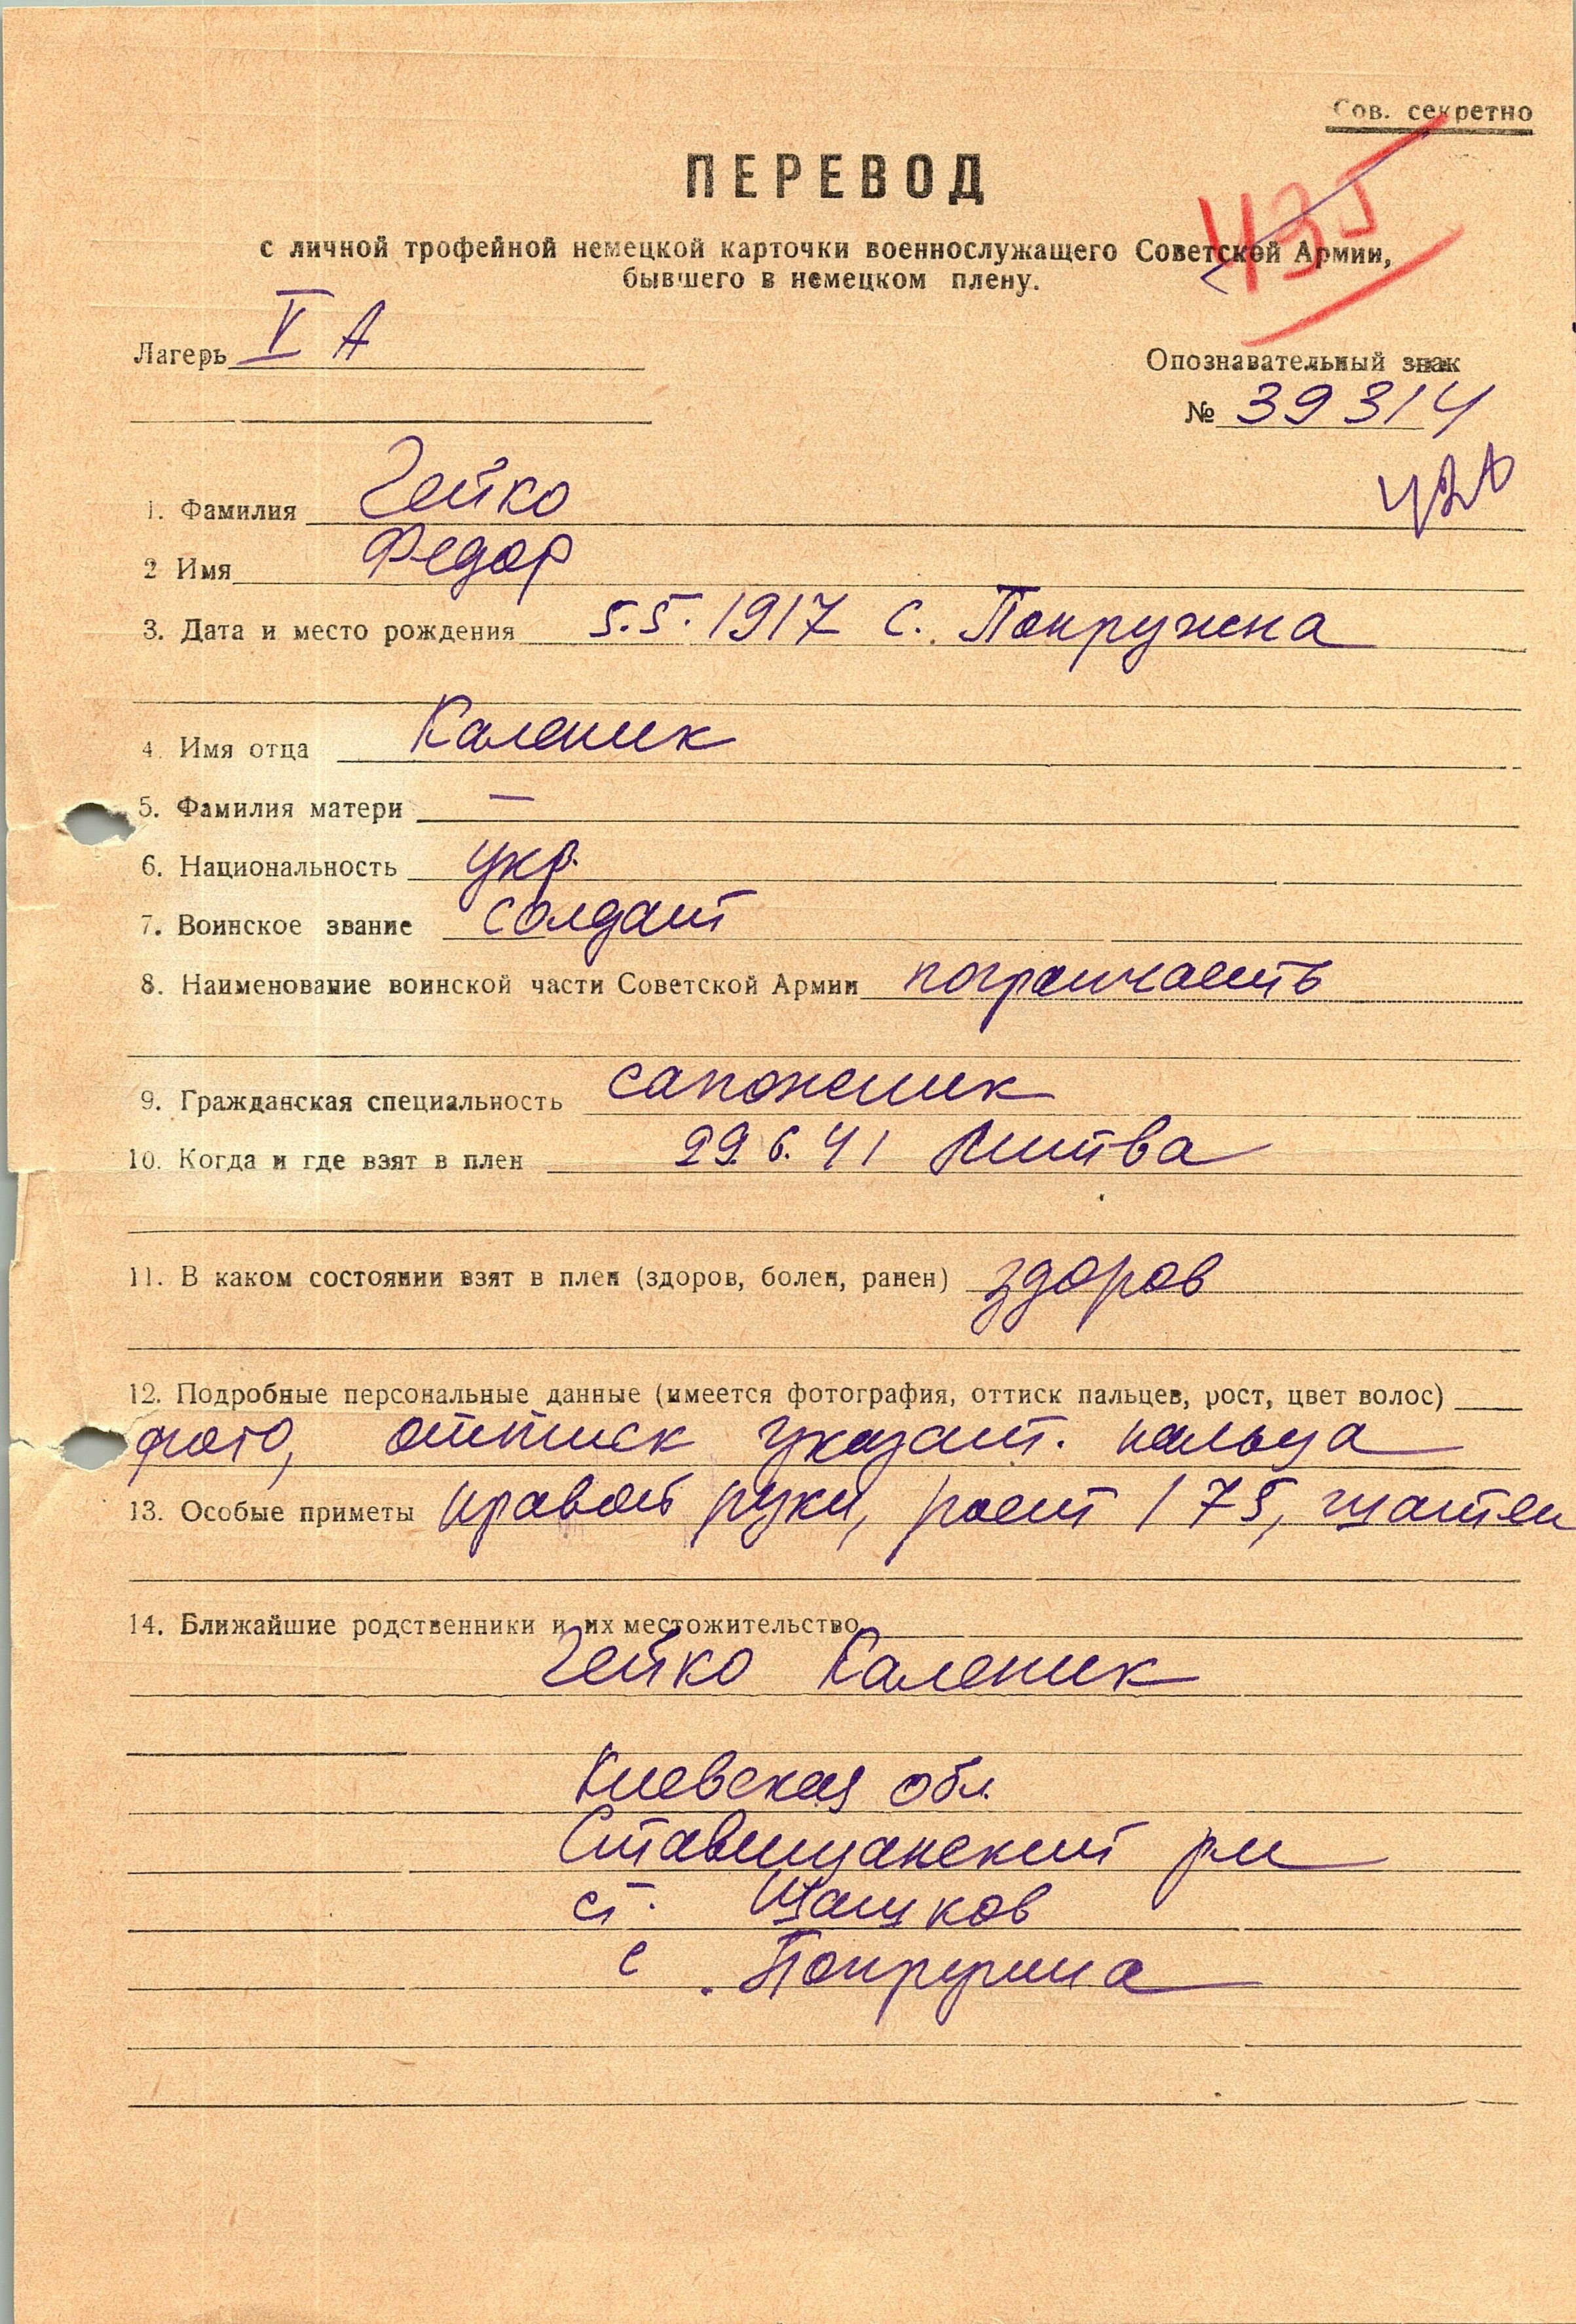 Сов. секретно
ПЕРЕВОД
435
с личной трофейной немецкой карточки военнослужащего Советской Армии,
бывшего в немецком плену.
Лагерь V А
Опознавательный знак
№ 39314
1. Фамилия Гейко
2 Имя Федор
3. Дата и место рождения 5.5.1917 с. Покружна
4. Имя отца Каленик
5. Фамилия матери —
6. Национальность укр.
7. Воинское звание солдат
8. Наименование воинской части Советской Армии погранчасть
9. Гражданская специальность сапожник
10. Когда и где взят в плен 29.6.41 Литва
11. В каком состоянии взят в плен (здоров, болен, ранен) здоров
12. Подробные персональные данные (имеется фотография, оттиск пальцев, рост, цвет волос)
фото, оттиск указат. пальца
13. Особые приметы правой руки, рост 175, шатен
14. Ближайшие родственники и их местожительство
Гейко Каленик
Киевская обл.
Ставищанский р-н
ст. Шашков
с.